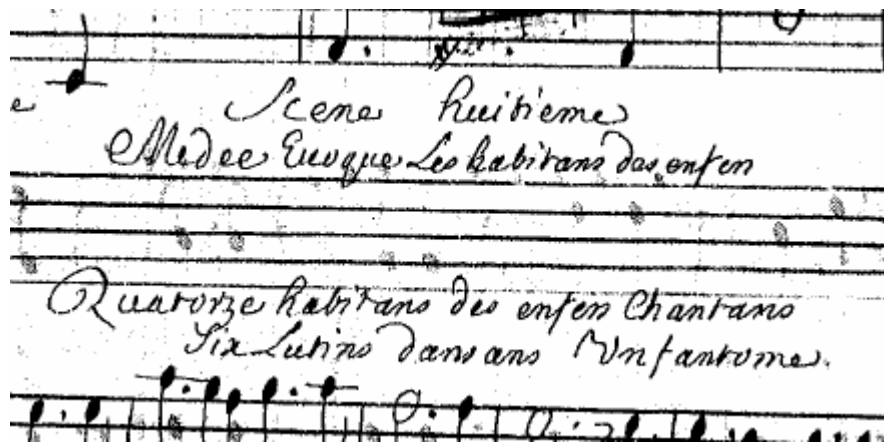 Scene huitieme
Medee Euoque Les habitans des enfen
Quatorze habitans des enfen Chantans
Six Lutins dansans Vn fantome.